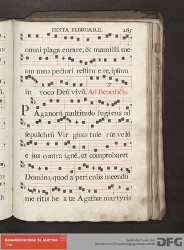 FESTA FEBRUARII. 287
omni plaga curare, & mamillæ me
am meo pectori restitu e re, ipsum
in voco Deū vivū. Ad Benedictus.
Paganorū multitudo fugiens ad
sepulchrū Vir ginis tule rūt velū
e jus contra ignē, ut comprobaret
Domin9, quod a peri culis incendii
me ritis be a tæ Agathæ martyris
DFG